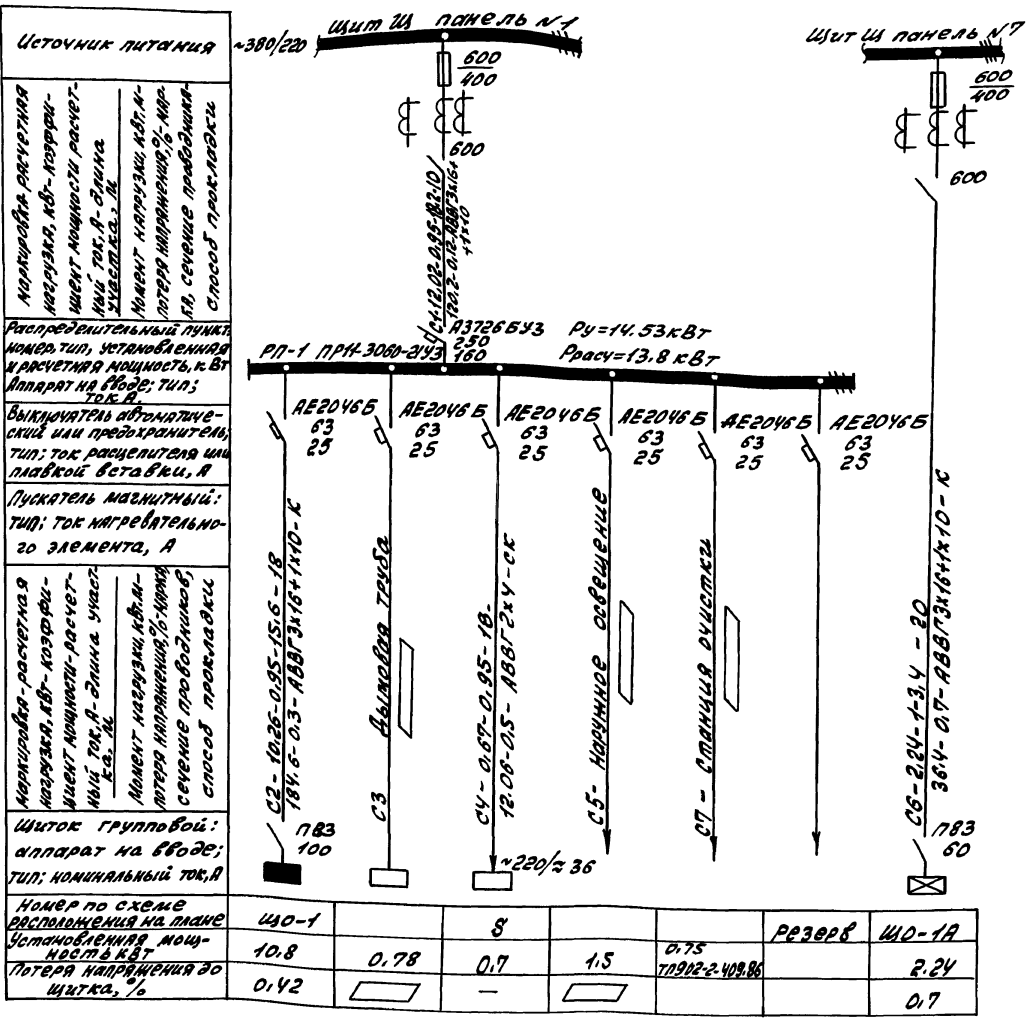 Источник питания
~380/220
Щит Щ панель №1
Щит Щ панель №7
600
400
600
600
400
600
Маркировка расчетная
нагрузка, кВт-коэффи-
циент мощности расчет-
ный ток, А-длина
участка, м
Момент нагрузки, кВт.м-
потеря напряжения, %-мар-
ка, сечение проводника-
способ прокладки
С1-12.02-0.95-18.2-10
120.2-0.12-АВВГ3х16+
+1х10
Распределительный пункт:
номер, тип, установленная
и расчетная мощность, кВт
Аппарат на вводе; тип;
ток А.
РП-1 ПР11-3060-21У3
А3726БУ3
250
160
Ру=14.53кВт
Ррасч=13.8 кВт
Выключатель автоматиче-
ский или предохранитель;
тип; ток расцепителя или
плавкой вставки, А
АЕ2046Б
63
25
АЕ2046Б
63
25
АЕ2046Б
63
25
АЕ2046Б
63
25
АЕ2046Б
63
25
АЕ2046Б
63
25
Пускатель магнитный:
тип; ток нагревательно-
го элемента, А
Маркировка-расчетная
нагрузка, кВт-коэффи-
циент мощности-расчет-
ный ток, А-длина участ-
ка, м
Момент нагрузки, кВт.м-
потеря напряжения, %-марка,
сечение проводников,
способ прокладки
С2-10.26-0.95-15.6-18
184.6-0.3-АВВГ3х16+1х10-К
С3 Дымовая труба
С4-0.67-0.95-18-
12.06-0.5-АВВГ2х4-ск
С5- Наружное освещение
С7- Станция очистки
С6-2.24-1-3.4-20
36.4-0.7-АВВГ3х16+1х10-К
Щиток групповой:
аппарат на вводе;
тип; номинальный ток, А
ПВ3
100
~220/≈36
ПВ3
60
Номер по схеме
расположения на плане
ЩО-1
8
Резерв
ЩО-1А
Установленная мощ-
ность кВт
10.8
0.78
0.7
1.5
0.75
ТП902-2-409.86
2.24
Потеря напряжения до
щитка, %
0.42
—
0.7